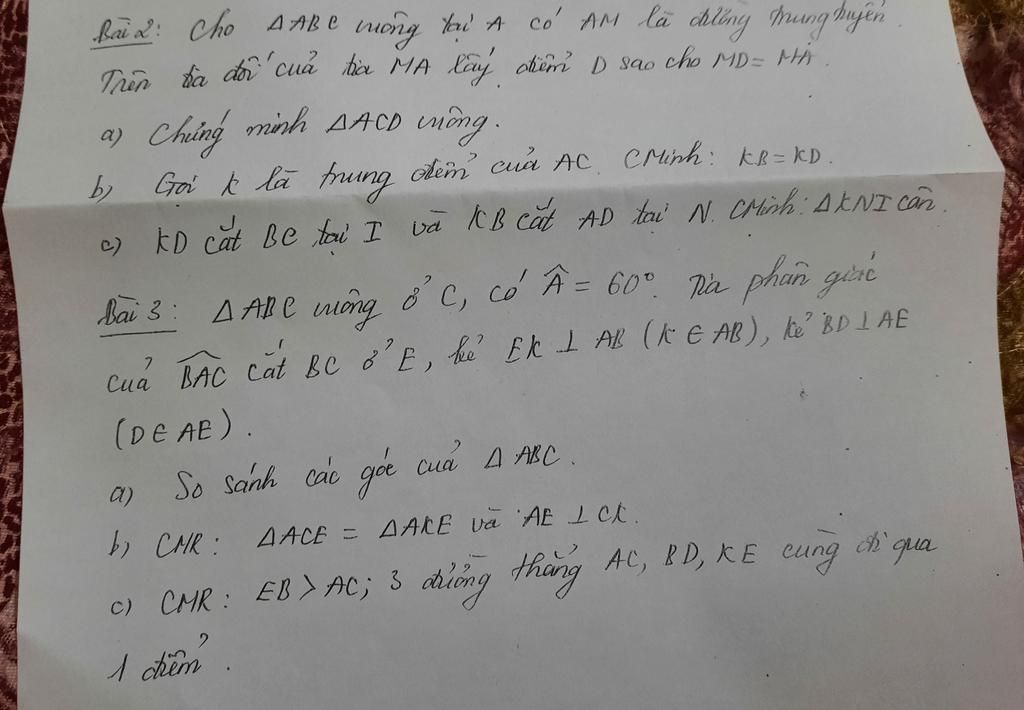 Bài 2: Cho ΔABC vuông tại A có AM là đường trung tuyến.
Trên tia đối của tia MA lấy điểm D sao cho MD = MA.
a) Chứng minh ΔACD vuông.
b) Gọi K là trung điểm của AC. CMinh: KB = KD.
c) KD cắt BC tại I và KB cắt AD tại N. CMinh: ΔKNI cân.
Bài 3: ΔABC vuông ở C, có Â = 60°. Tia phân giác
của BAC cắt BC ở E, kẻ EK ⊥ AB (K ∈ AB), kẻ BD ⊥ AE
(D ∈ AE).
a) So sánh các góc của ΔABC.
b) CMR: ΔACE = ΔAKE và AE ⊥ CK.
c) CMR: EB > AC; 3 đường thẳng AC, BD, KE cùng đi qua
1 điểm.